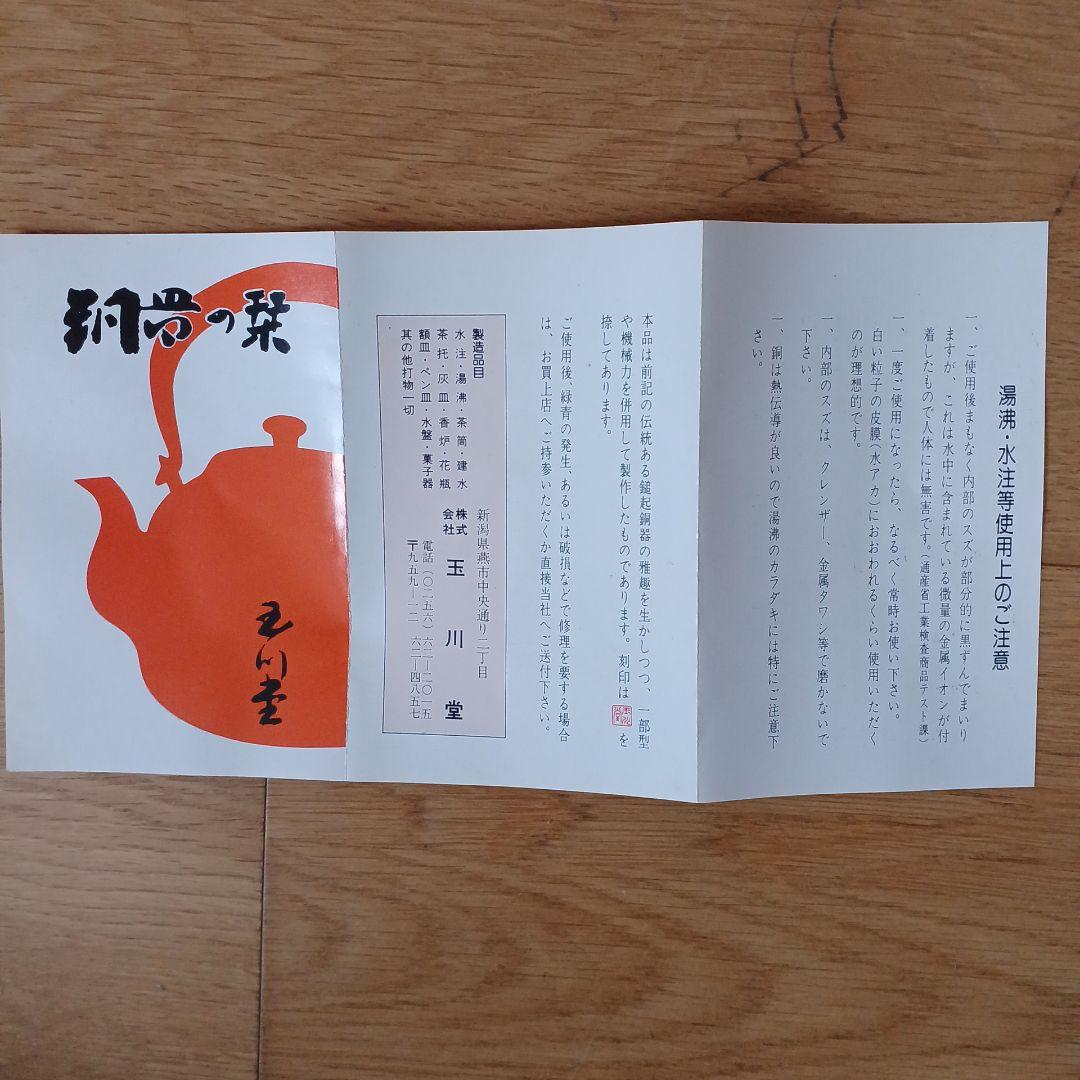 湯沸・水注等使用上のご注意
一、ご使用後まもなく内部のスズが部分的に黒ずんでまいり
ますが、これは水中に含まれている微量の金属イオンが付
着したもので人体には無害です。(通産省工業検査商品テスト課)
一、一度ご使用になったら、なるべく常時お使い下さい。
白い粒子の皮膜(水アカ)におおわれるくらい使用いただく
のが理想的です。
一、内部のスズは、クレンザー、金属タワシ等で磨かないで
下さい。
一、銅は熱伝導が良いので湯沸のカラダキには特にご注意下
さい。
本品は前記の伝統ある鎚起銅器の雅趣を生かしつつ、一部型
や機械力を併用して製作したものであります。刻印は を
捺してあります。
ご使用後、緑青の発生、あるいは破損などで修理を要する場合
は、お買上店へご持参いただくか直接当社へご送付下さい。
製造品目
水注・湯沸・茶筒・建水
茶托・灰皿・香炉・花瓶
額皿・ペン皿・水盤・菓子器
其の他打物一切
新潟県燕市中央通り二丁目
株式会社 玉川堂
電話(〇二五六)六二―二〇一五
〒九五九―一二 六二―四八五七
銅器の栞
玉川堂